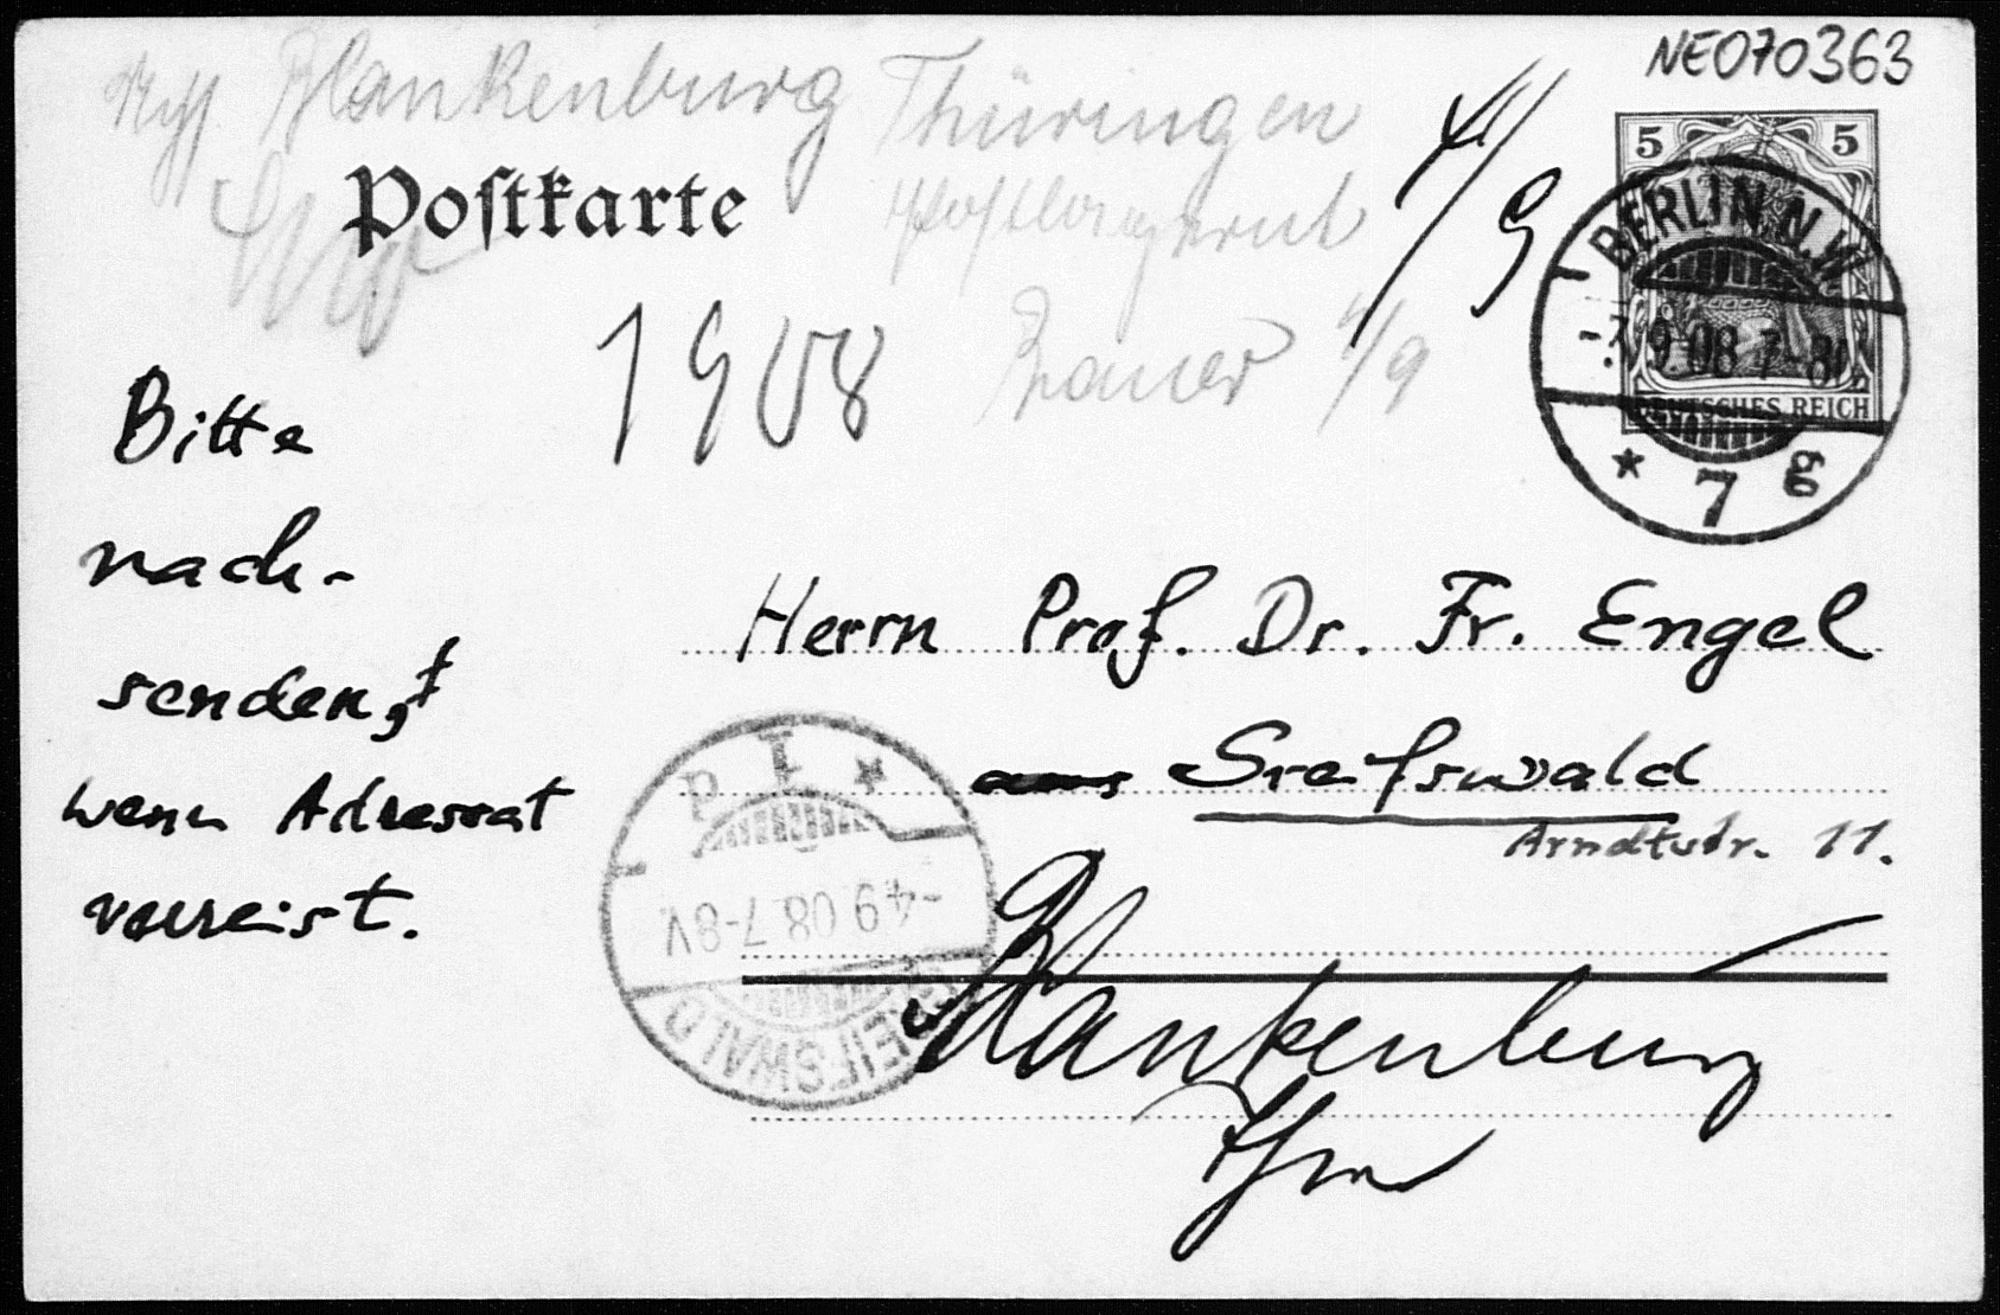 NE070363
Blankenburg Thüringen
Postkarte
postlagernd
4/9
1908
Bauer 4/9
5 5
BERLIN N.W.
9 08 7-8
DEUTSCHES REICH
* 7 g
Bitte
nach-
senden,
wenn Adressat
verreist.
Herrn Prof. Dr. Fr. Engel
Greifswald
Arndtstr. 11.
-4.9.08.7-8V.
GREIFSWALD
Blankenburg
Thür